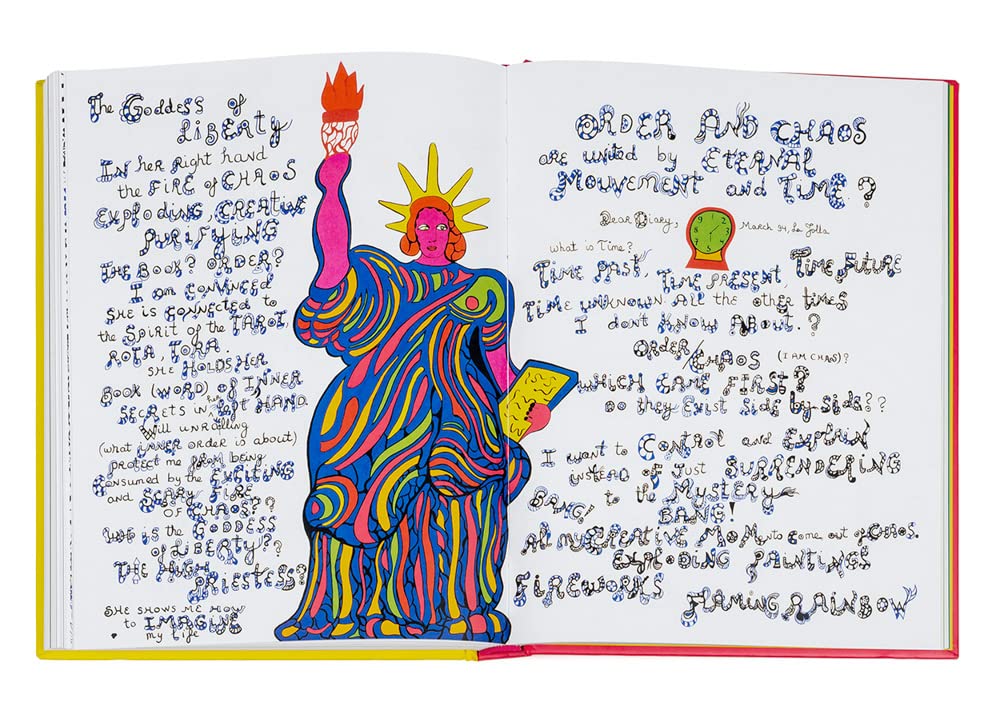 The GoddEss of
LiBERTY
In her Right hand
the FiRE of CHAOS
ExploDiNG, CREATiVE
PURiFYiNG
THE BOOK? ORDER?
I am CONViNCED
SHE is CONNECTED to
the Spirit of the TAROT,
ROTA, TORA.
SHE HOLDS HER
BOOK (WORD) of INNER
SECRETS in her left HAND.
Will UNROlling
(what iNNER ORDER is about)
protect me from being
Consumed by the EXCiTiNG
and SCARY FiRE
OF CHAOS??
WHO is the GODDESS
of LiBERTY??
THE HiGH
PRiESTESS?
SHE SHOWS ME HOW
to IMAGiNE
my life
ORDER AND CHAOS
are united by ETERNAL
MOUVEMENT and TiME?
Dear Diary,
March 94, La Jolla
what is Time?
TiME PAST, TiME PRESENT, TiME FUTURE
TiME UNKNOWN. All the other times
I don't KNOW About.?
ORDER/CHAOS (I AM CHAOS)?
WHiCH CAME FiRST?
DO they Exist Side by-side??
I want to CONtROl and EXPlAiN
iNSTEAD of Just SURRENDERiNG
to the MYSTERY
BANG!
BANG!
All my CREATiVE MOMents come out of CHAOS.
EXPLODiNG PAiNTiNGS
FiREWORKS
FlAMiNG RAiNBOW